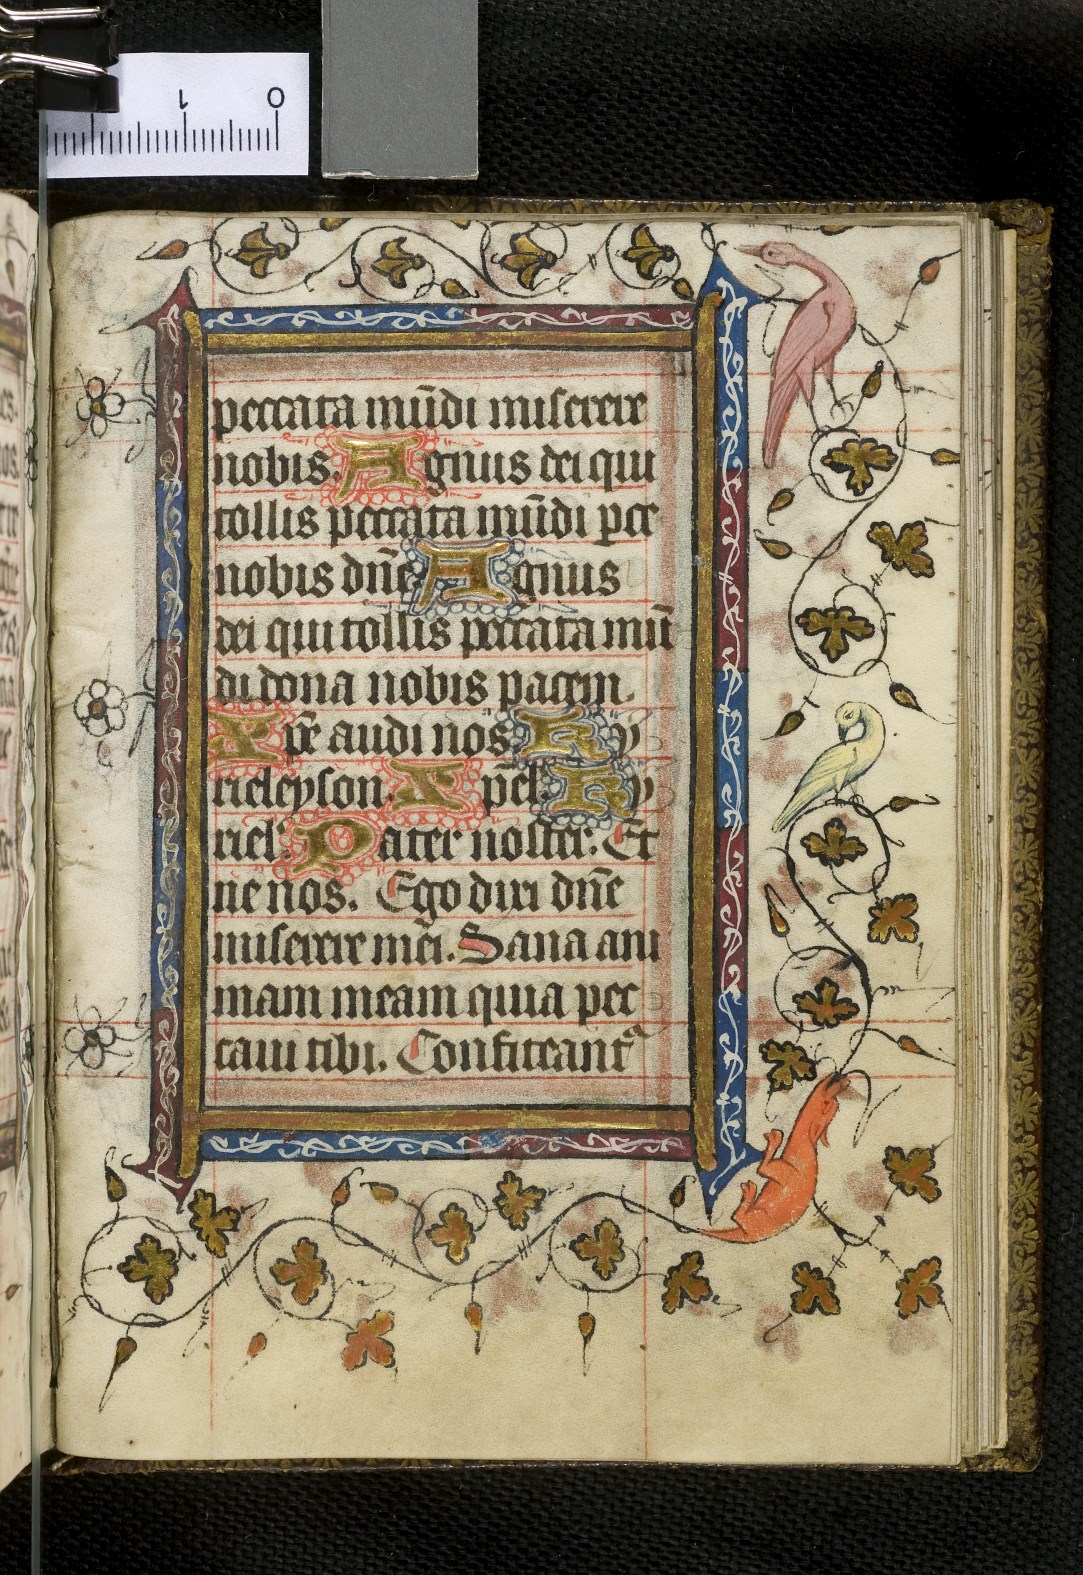 1 0
peccata mu̅di miserere
nobis. Agnus dei qui
tollis peccata mu̅di p̲ce
nobis dn̅e Agnus
dei qui tollis peccata mu̅
di dona nobis pacem.
Xp̅e audi nos. Ky
rieleyson. Xpe̅l. Ky
riel. Pater noster. Et
ne nos. Ego dixi dn̅e
miserere mei. Sana ani
mam meam quia pec
caui tibi. Confiteant᷑